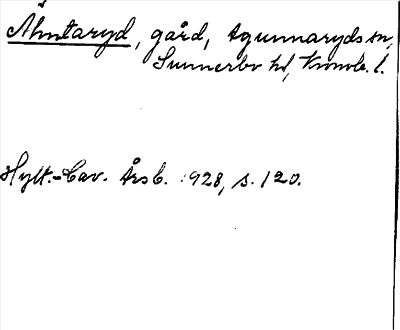 Åhmtaryd, gård, Agunnaryds sn,
Sunnerbo hd, Kronob. l.
Hylt.-Cav. Årsb. 1928, s. 120.